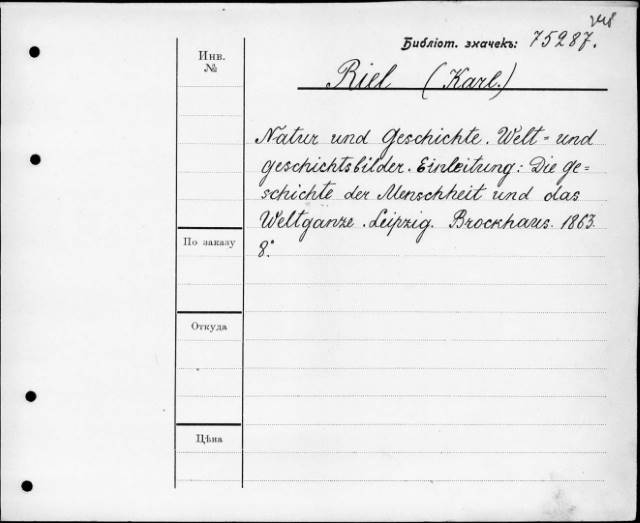 248
Библіот. значекъ: 75287.
Инв.
№
Riel (Karl.)
Natur und Geschichte. Welt- und
geschichtsbilder. Einleitung: Die Ge-
schichte der Menschheit und das
Weltganze. Leipzig. Brockhaus. 1863.
8°.
По заказу
Откуда
Цѣна